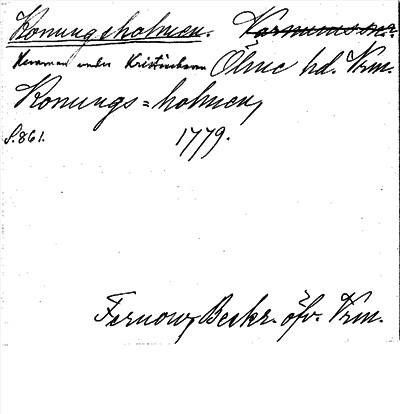 Konungsholmen. Varnumssn?
Herrman under Kristinehamn Ölme hd. Vrm.
Konungs=holmen,
S. 861. 1779.
Fernow, Beskr. öfv. Vrm.